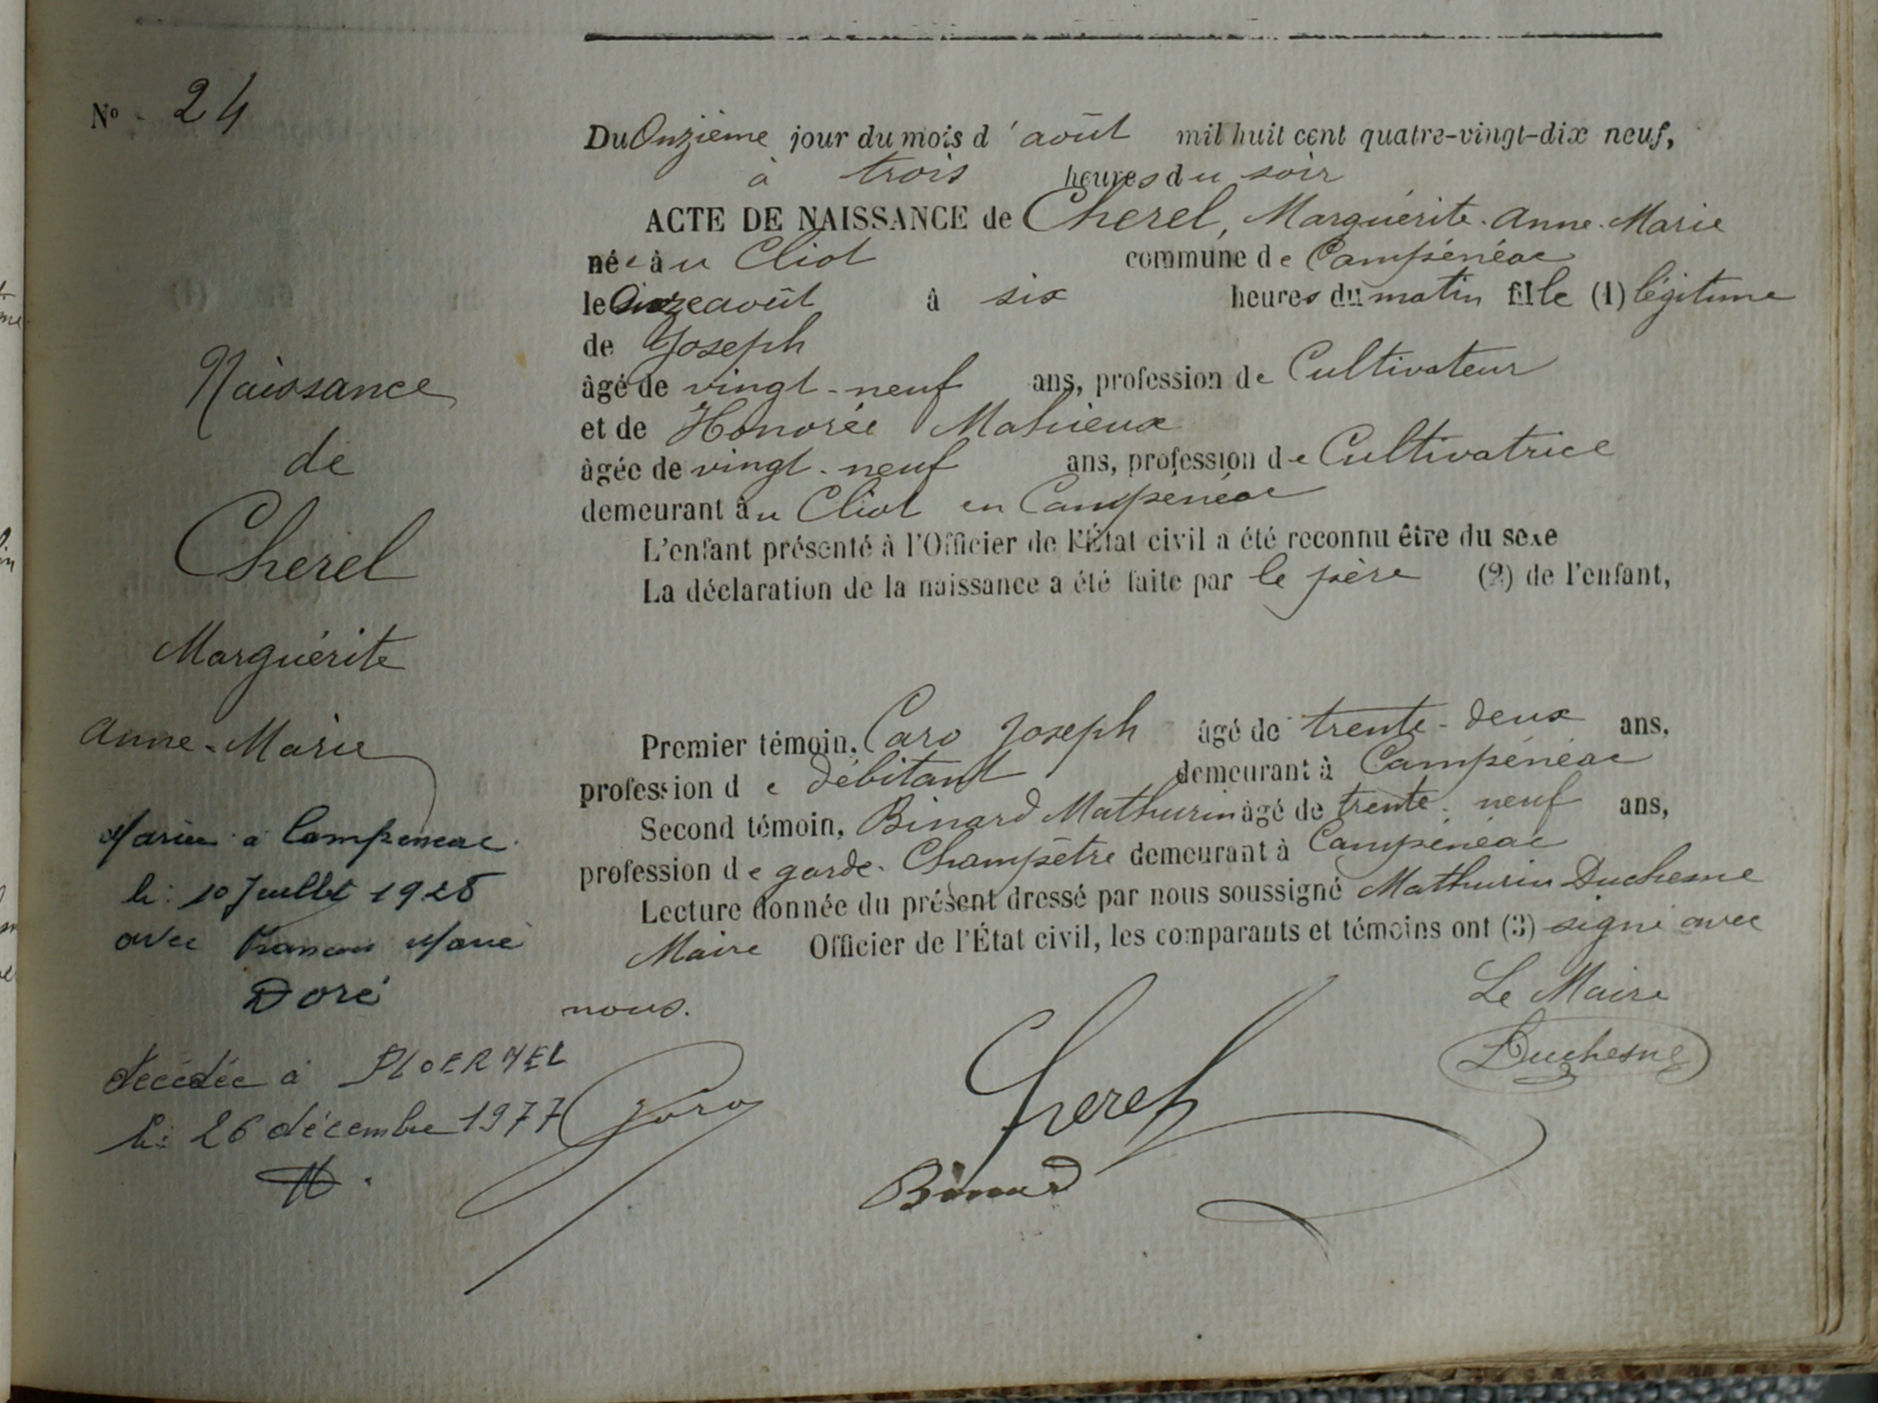 N° 24
Du Onzième jour du mois d'août mil huit cent quatre-vingt-dix neuf,
à trois heures du soir
ACTE DE NAISSANCE de Cherel, Marguérite Anne Marie
née au Cliot commune de Campénéac
le Onze août à six heures du matin fille (1) légitime
de Joseph
âgé de vingt-neuf ans, profession de Cultivateur
et de Honorée Mahieux
âgée de vingt-neuf ans, profession de Cultivatrice
demeurant au Cliot en Campénéac
L'enfant présenté à l'Officier de l'État civil a été reconnu être du sexe
La déclaration de la naissance a été faite par le père (2) de l'enfant,
Premier témoin, Caro Joseph âgé de trente-deux ans,
profession de débitant demeurant à Campénéac
Second témoin, Binard Mathurin âgé de trente-neuf ans,
profession de garde-Champêtre demeurant à Campénéac
Lecture donnée du présent dressé par nous soussigné Mathurin Duchesne
Maire Officier de l'État civil, les comparants et témoins ont (3) signé avec
nous.
Le Maire
Duchesne
Cherel
Caro
Binard
Naissance
de
Cherel
Marguérite
Anne-Marie
Mariée à Campeneac
le 10 Juillet 1928
avec François Marie
Doré
décédée à PLOERMEL
le 26 décembre 1977